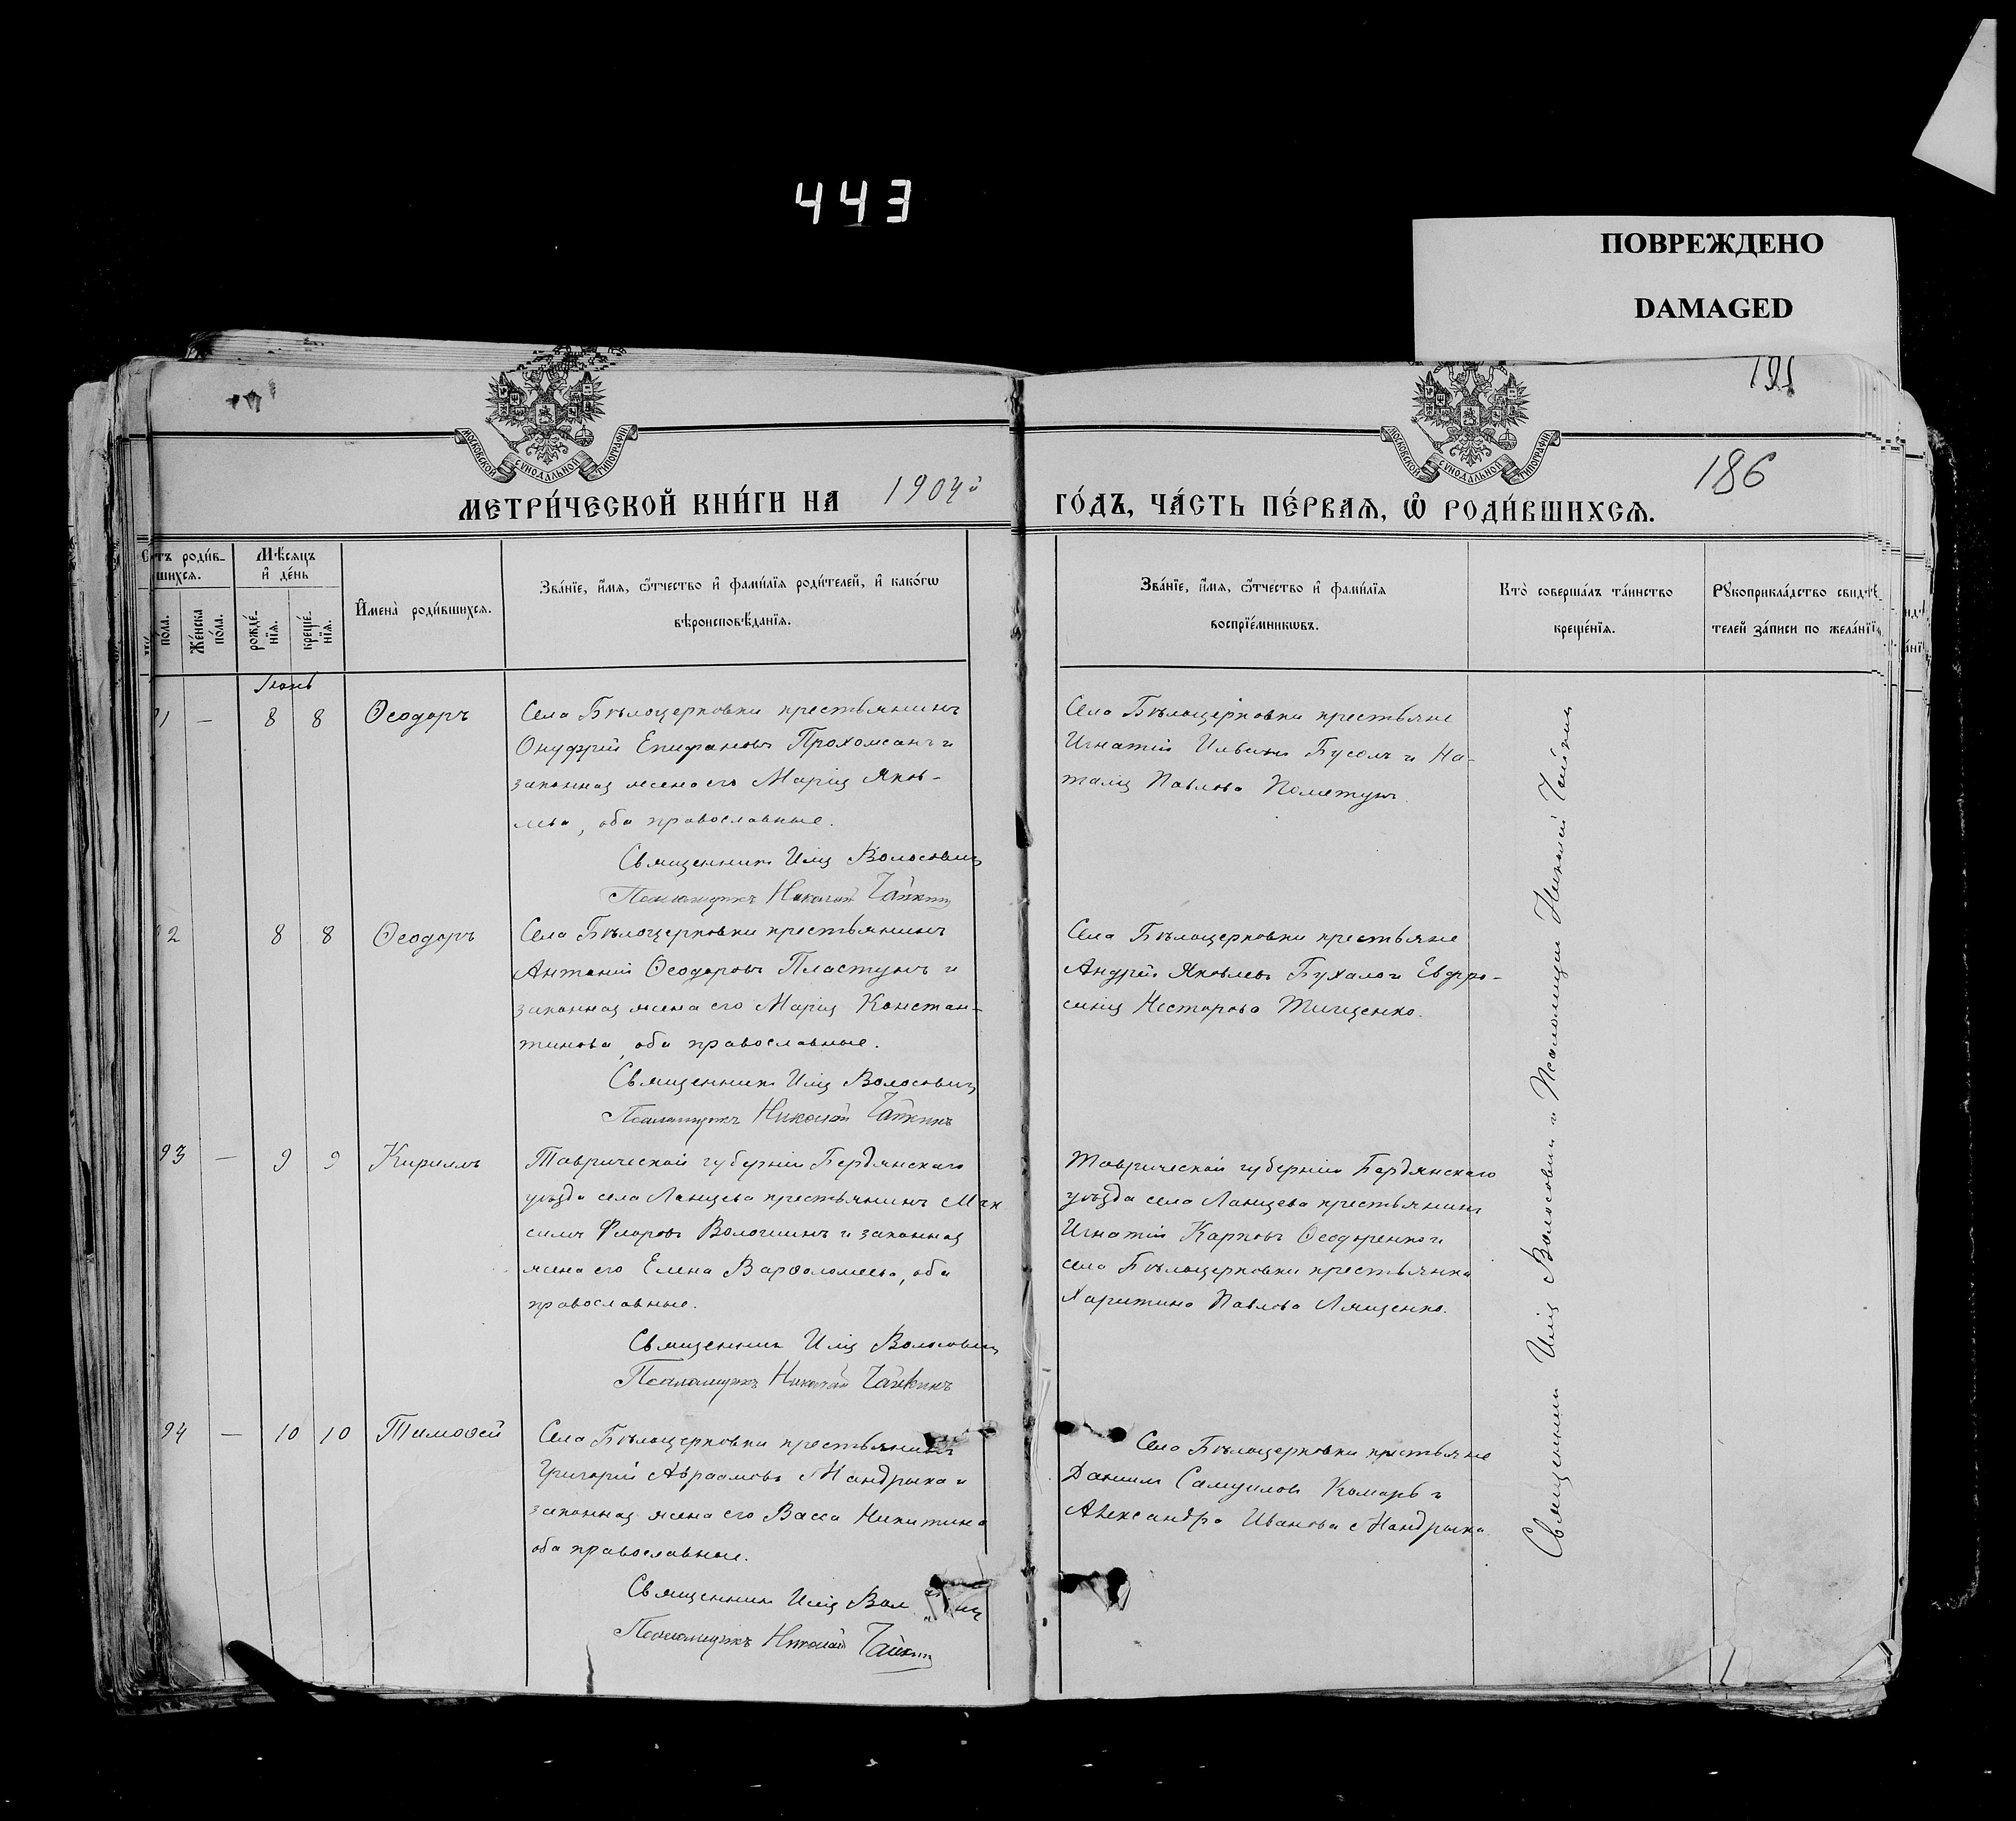 443
ПОВРЕЖДЕНО
DAMAGED
186
МОСКОВСКОЙ СѴНОДАЛЬНОЙ ТИПОГРАФІИ
МОСКОВСКОЙ СѴНОДАЛЬНОЙ ТИПОГРАФІИ
МЕТРИ́ЧЕСКОЙ КНИ́ГИ НА 1904й ГО́ДЪ, ЧА́СТЬ ПЕ́РВАѦ, Ѡ҆ РОДИ́ВШИХСѦ.
роди́в-
шихсѧ.
по́ла.
Же́нска по́ла.
Мѣ́сѧцъ
и҆ де́нь
рожде́-
нїѧ.
креще́-
нїѧ.
И҆мена̀ роди́вшихсѧ.
Зва́нїе, и҆́мѧ, ѻ҆́тчество и҆ фами́лїѧ роди́телей, и҆ како́гѡ
вѣроисповѣ́данїѧ.
Зва́нїе, и҆́мѧ, ѻ҆́тчество и҆ фами́лїѧ
воспрїе́мникѡвъ.
Кто̀ соверша́лъ та́инство
креще́нїѧ.
Рꙋкоприкла́дство свидѣ́-
телей за́писи по жела́нїю
Іюнь
1 — 8 8 Ѳеодоръ
Села Бѣлоцерковки крестьянинъ
Онуфрій Епифановъ Прохожанъ и
законная жена его Марія Яков-
лева, оба православные.
Священникъ Илія Волосовичъ
Псаломщикъ Николай Чайкинъ
Села Бѣлоцерковки крестьяне
Игнатій Ильинъ Бусолъ и На-
талія Павлова Пометунъ.
2 8 8 Ѳеодоръ
Села Бѣлоцерковки крестьянинъ
Антоній Ѳеодоровъ Пластунъ и
законная жена его Марія Констан-
тинова, оба православные.
Священникъ Илія Волосовичъ
Псаломщикъ Николай Чайкинъ
Села Бѣлоцерковки крестьяне
Андрей Яковлевъ Бухало и Евфро-
синія Несторова Тищенко.
93 — 9 9 Кириллъ
Таврической губерніи Бердянскаго
уѣзда села Ланцева крестьянинъ Мак
симъ Флоровъ Волошинъ и законная
жена его Елена Варѳоломеева, оба
православные.
Священникъ Илія Волосовичъ
Псаломщикъ Николай Чайкинъ
Таврической губерніи Бердянскаго
уѣзда села Ланцева крестьянинъ
Игнатій Карповъ Ѳеодоренко и
села Бѣлоцерковки крестьянка
Харитина Павлова Лященко.
94 — 10 10 Тимоѳей
Села Бѣлоцерковки крестьянинъ
Григорій Авраамовъ Мандрыка и
законная жена его Васса Никитина
оба православные.
Священникъ Илія Вол
Псаломщикъ Николай Чайкинъ
Села Бѣлоцерковки крестьяне
Даніилъ Самуиловъ Комаръ и
Александра Иванова Мандрыка.
Священникъ Илія Волосовичъ и Псаломщикъ Николай Чайкинъ